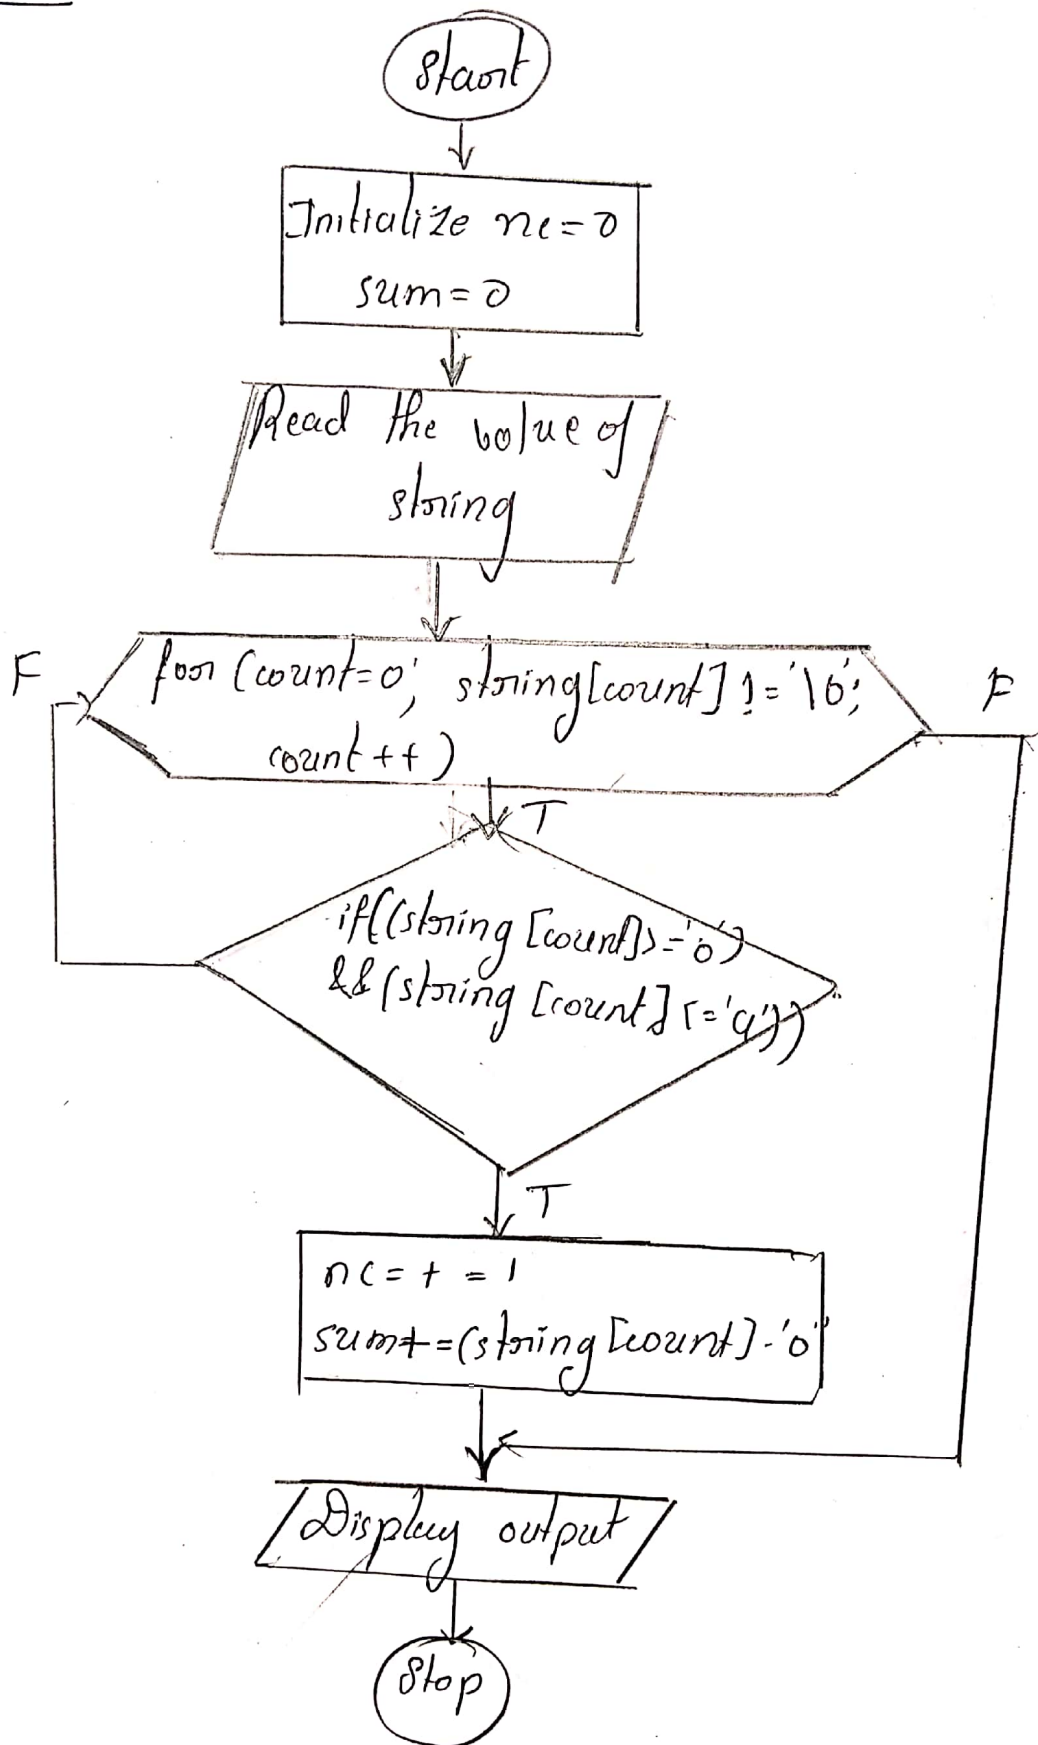 Start
Initialize nc=0
sum=0
Read the value of
string
F
for (count=0; string[count] != '\0';
F
count++)
T
if((string[count]>='0')
&&(string[count]<='9'))
T
nc=+=1
sum+=(string[count]-'0'
Display output
Stop